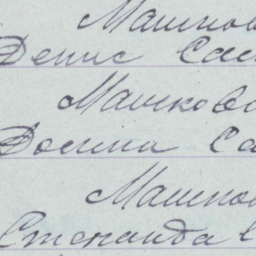 Машков
Денис Сам
Машково
Домна Са
Машков
Степанида